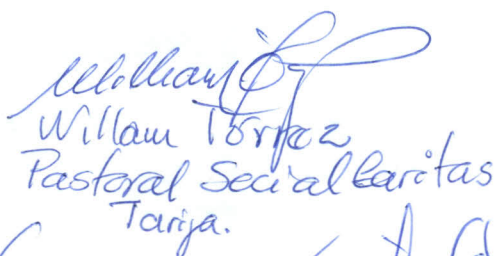 Willam Torrez
Pastoral Social Caritas
Tarija.